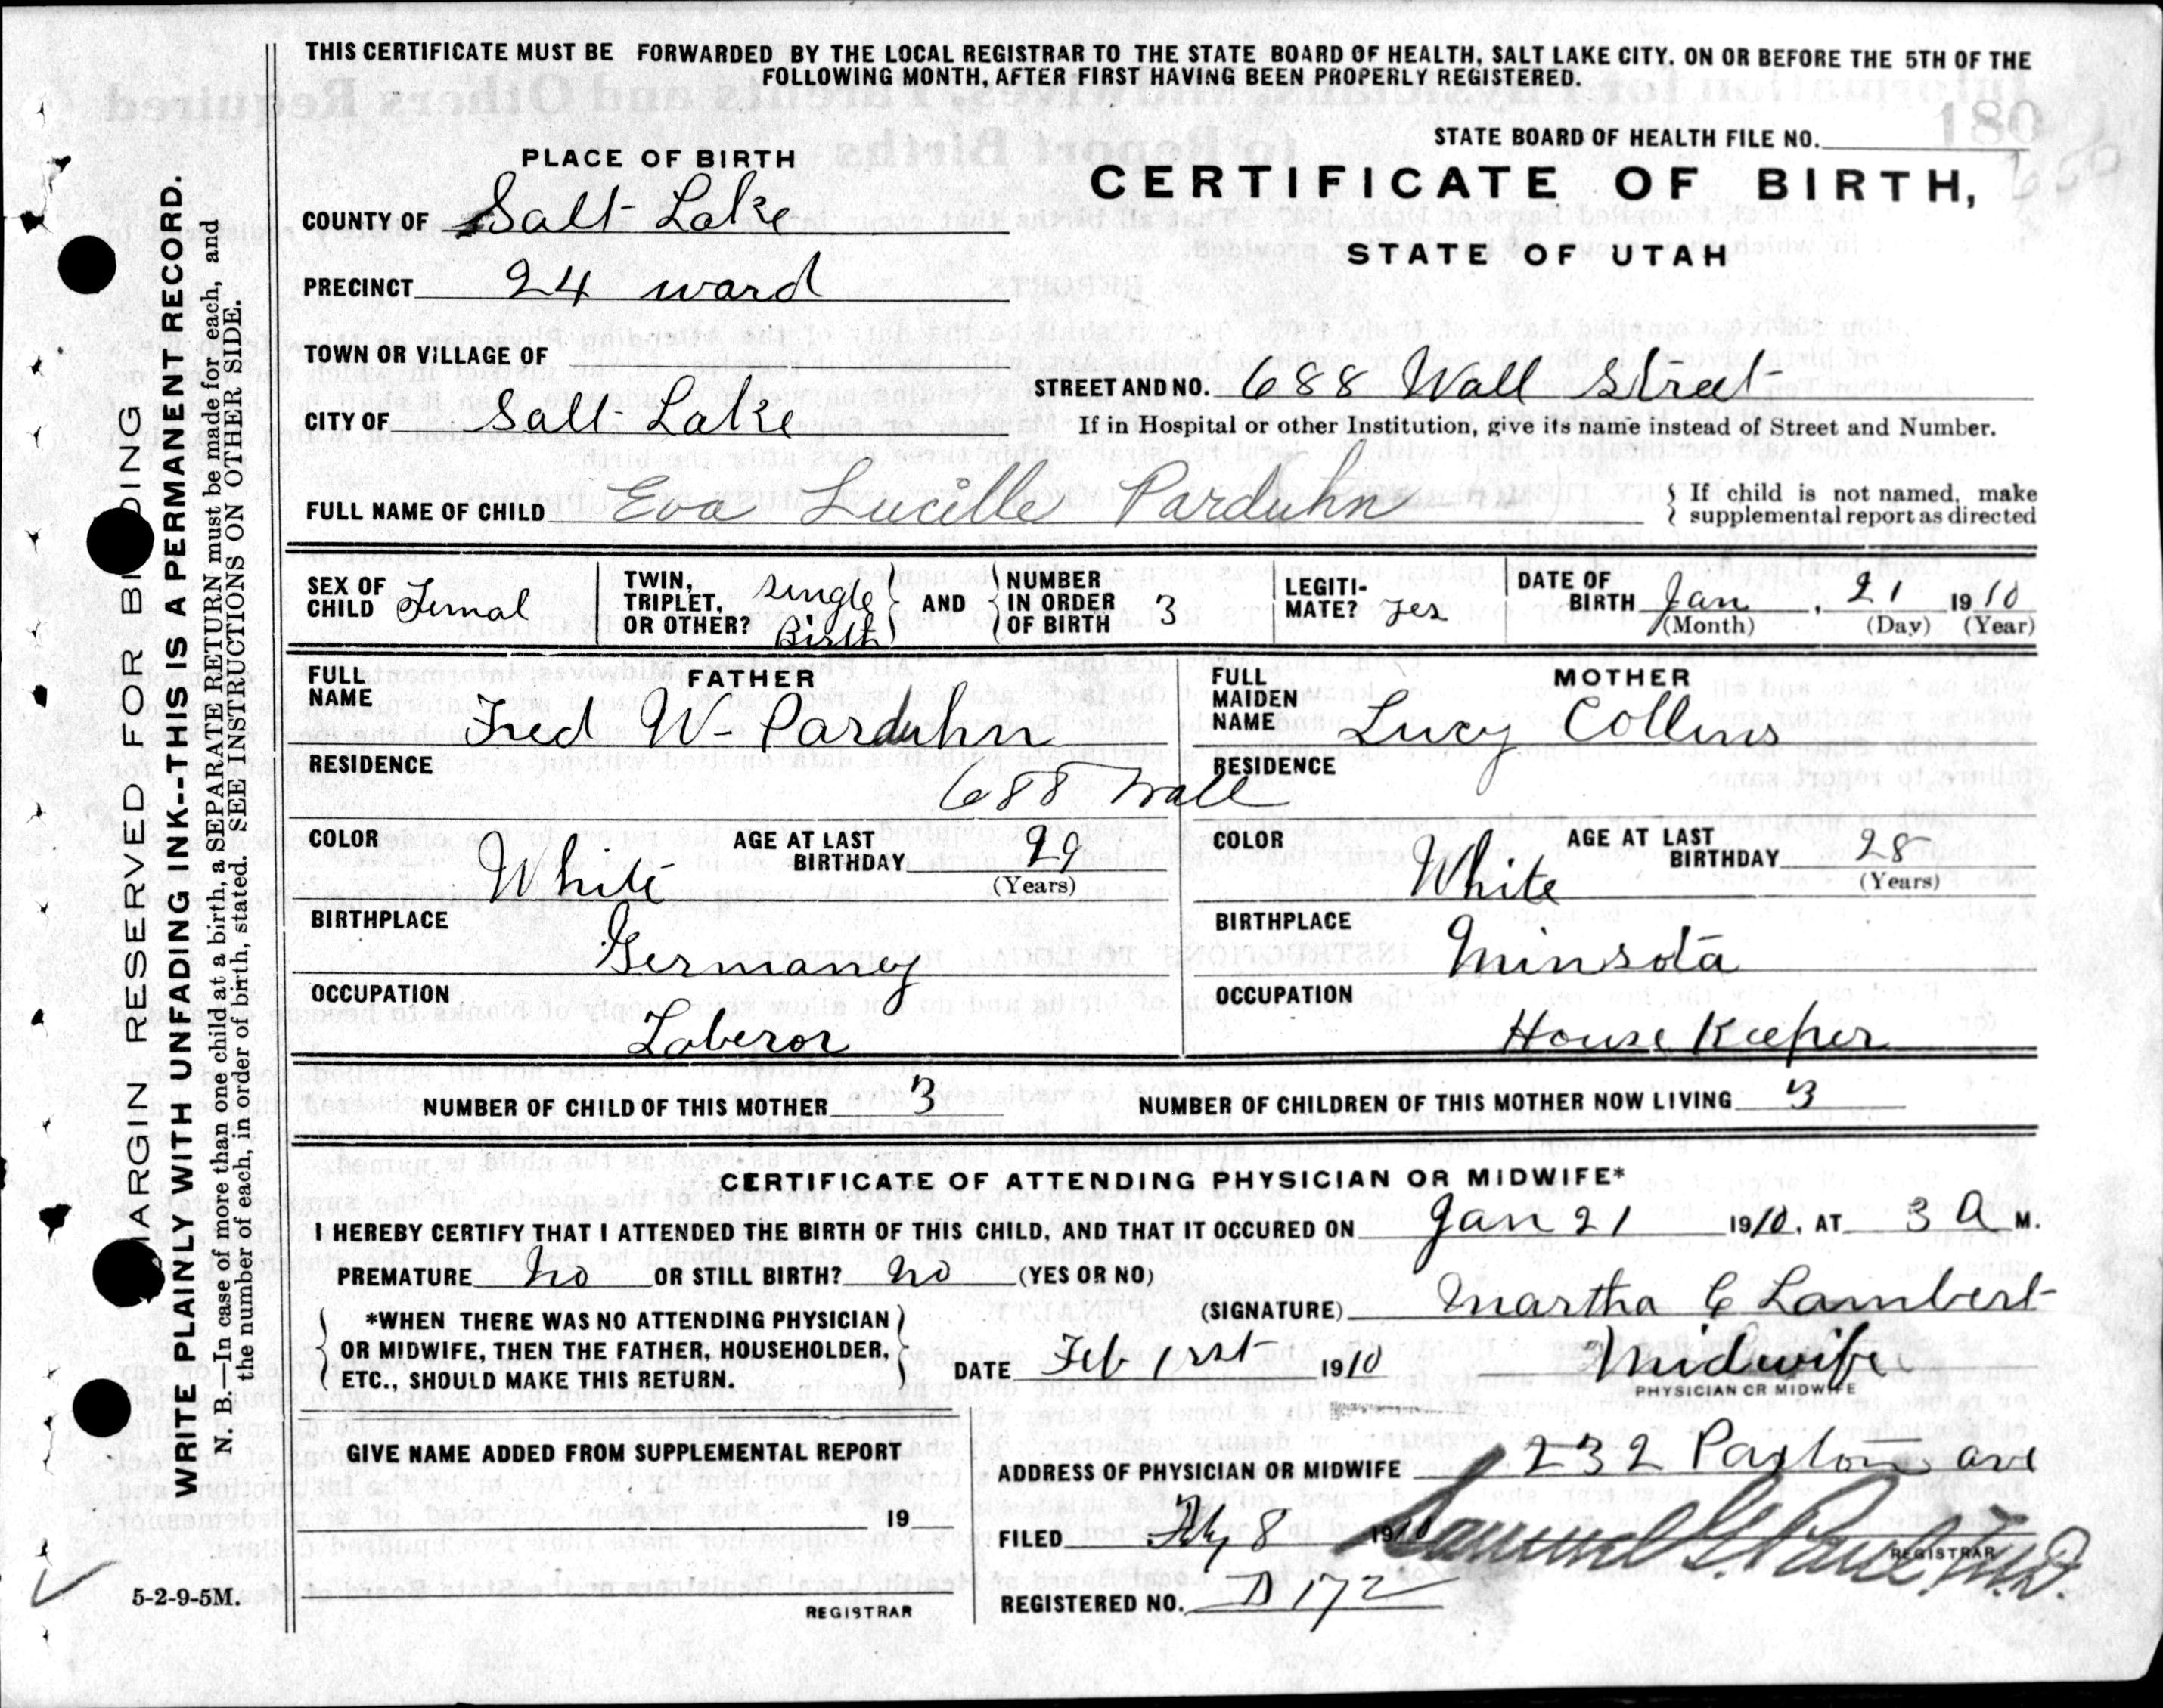 THIS CERTIFICATE MUST BE FORWARDED BY THE LOCAL REGISTRAR TO THE STATE BOARD OF HEALTH, SALT LAKE CITY, ON OR BEFORE THE 5TH OF THE
FOLLOWING MONTH, AFTER FIRST HAVING BEEN PROPERLY REGISTERED.
STATE BOARD OF HEALTH FILE NO. 180
PLACE OF BIRTH
CERTIFICATE OF BIRTH,
STATE OF UTAH
COUNTY OF Salt Lake
PRECINCT 24 ward
TOWN OR VILLAGE OF
STREET AND NO. 688 Wall Street
CITY OF Salt Lake
If in Hospital or other Institution, give its name instead of Street and Number.
FULL NAME OF CHILD Eva Lucille Parduhn
If child is not named, make
supplemental report as directed
SEX OF CHILD Femal
TWIN, TRIPLET, OR OTHER? Single Birth
AND NUMBER IN ORDER OF BIRTH 3
LEGITIMATE? yes
DATE OF BIRTH Jan, 21 1910
(Month) (Day) (Year)
FATHER
FULL NAME Fred W- Parduhn
MOTHER
FULL MAIDEN NAME Lucy Collins
RESIDENCE 688 Wall RESIDENCE
COLOR White AGE AT LAST BIRTHDAY 29 (Years)
COLOR White AGE AT LAST BIRTHDAY 28 (Years)
BIRTHPLACE Germaney
BIRTHPLACE Minsota
OCCUPATION Laberor
OCCUPATION House Keeper
NUMBER OF CHILD OF THIS MOTHER 3 NUMBER OF CHILDREN OF THIS MOTHER NOW LIVING 3
CERTIFICATE OF ATTENDING PHYSICIAN OR MIDWIFE*
I HEREBY CERTIFY THAT I ATTENDED THE BIRTH OF THIS CHILD, AND THAT IT OCCURED ON Jan 21 1910, AT 3 A M.
PREMATURE no OR STILL BIRTH? no (YES OR NO)
(SIGNATURE) Martha C Lambert
*WHEN THERE WAS NO ATTENDING PHYSICIAN
OR MIDWIFE, THEN THE FATHER, HOUSEHOLDER,
ETC., SHOULD MAKE THIS RETURN.
DATE Feb 1rst 1910 Midwife
PHYSICIAN OR MIDWIFE
GIVE NAME ADDED FROM SUPPLEMENTAL REPORT
19
REGISTRAR
ADDRESS OF PHYSICIAN OR MIDWIFE 232 Paxton ave
FILED Feby 8 1910
REGISTRAR
REGISTERED NO. D 172
MARGIN RESERVED FOR BINDING
WRITE PLAINLY WITH UNFADING INK--THIS IS A PERMANENT RECORD.
N. B.—In case of more than one child at a birth, a SEPARATE RETURN must be made for each, and
the number of each, in order of birth, stated. SEE INSTRUCTIONS ON OTHER SIDE.
5-2-9-5M.